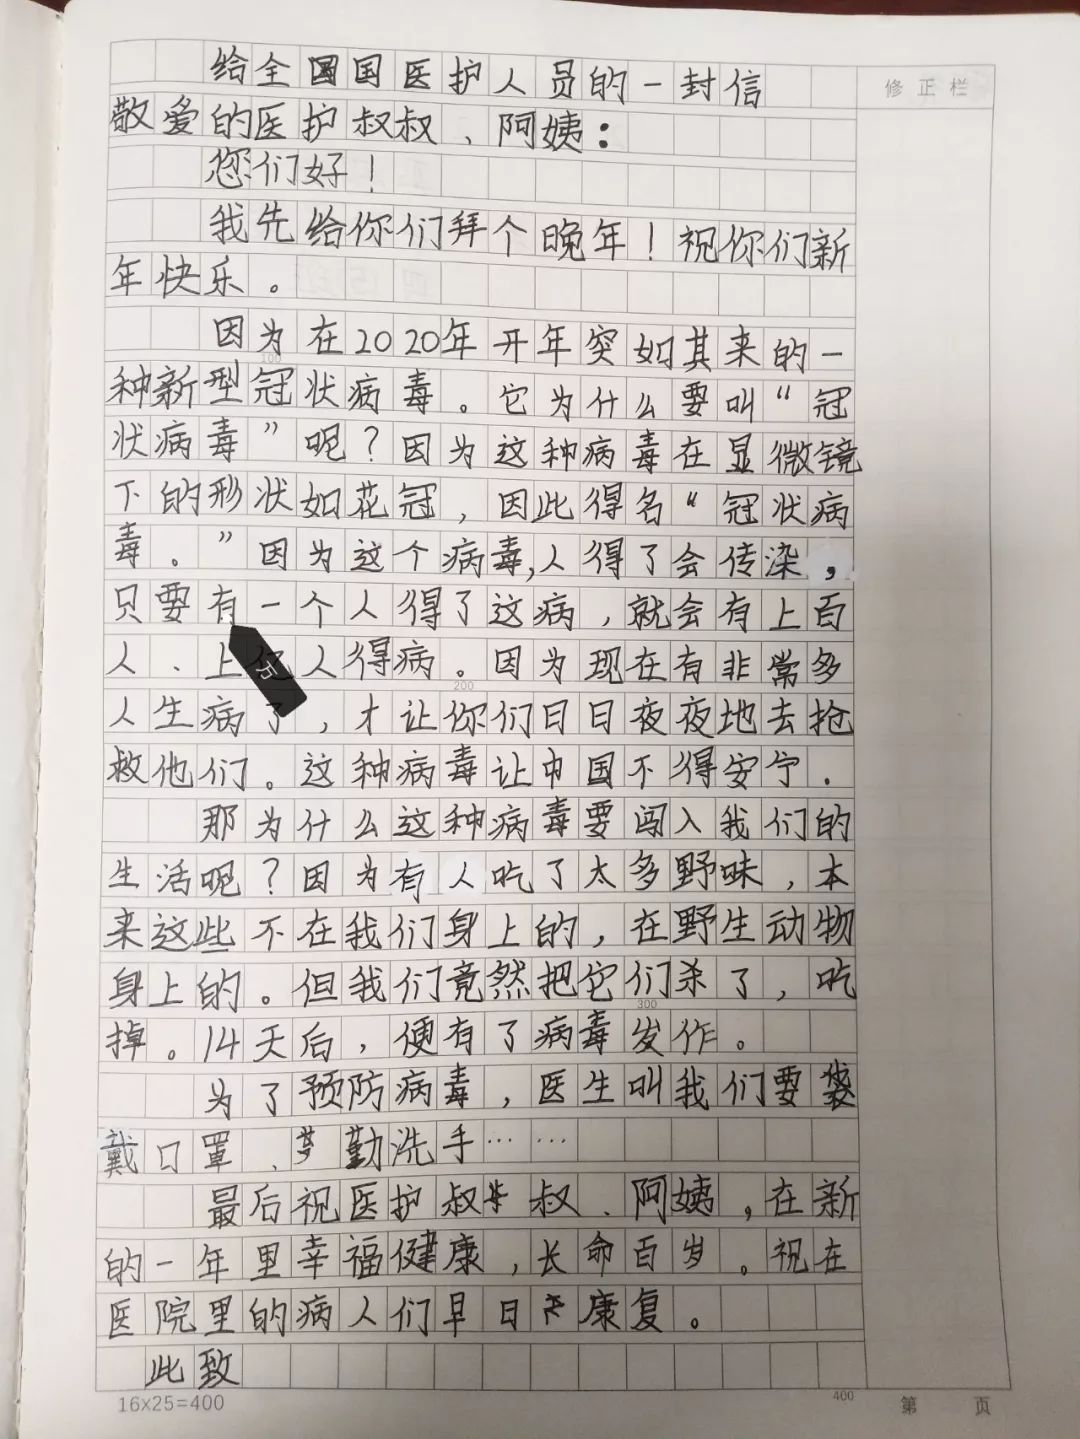 给全国医护人员的一封信
修正栏
敬爱的医护叔叔、阿姨：
您们好！
我先给你们拜个晚年！祝你们新
年快乐。
因为在2020年开年突如其来的一
种新型冠状病毒。它为什么要叫“冠
状病毒”呢？因为这种病毒在显微镜
下的形状如花冠，因此得名“冠状病
毒。”因为这个病毒,人得了会传染，
只要有一个人得了这病，就会有上百
人、上万人得病。因为现在有非常多
人生病了，才让你们日日夜夜地去抢
救他们。这种病毒让中国不得安宁.
那为什么这种病毒要闯入我们的
生活呢？因为有人吃了太多野味，本
来这些不在我们身上的，在野生动物
身上的。但我们竟然把它们杀了，吃
掉。14天后，便有了病毒发作。
为了预防病毒，医生叫我们要
戴口罩、勤洗手……
最后祝医护叔叔、阿姨，在新
的一年里幸福健康，长命百岁。祝在
医院里的病人们早日康复。
此致
100
200
300
16×25=400
400
第 页